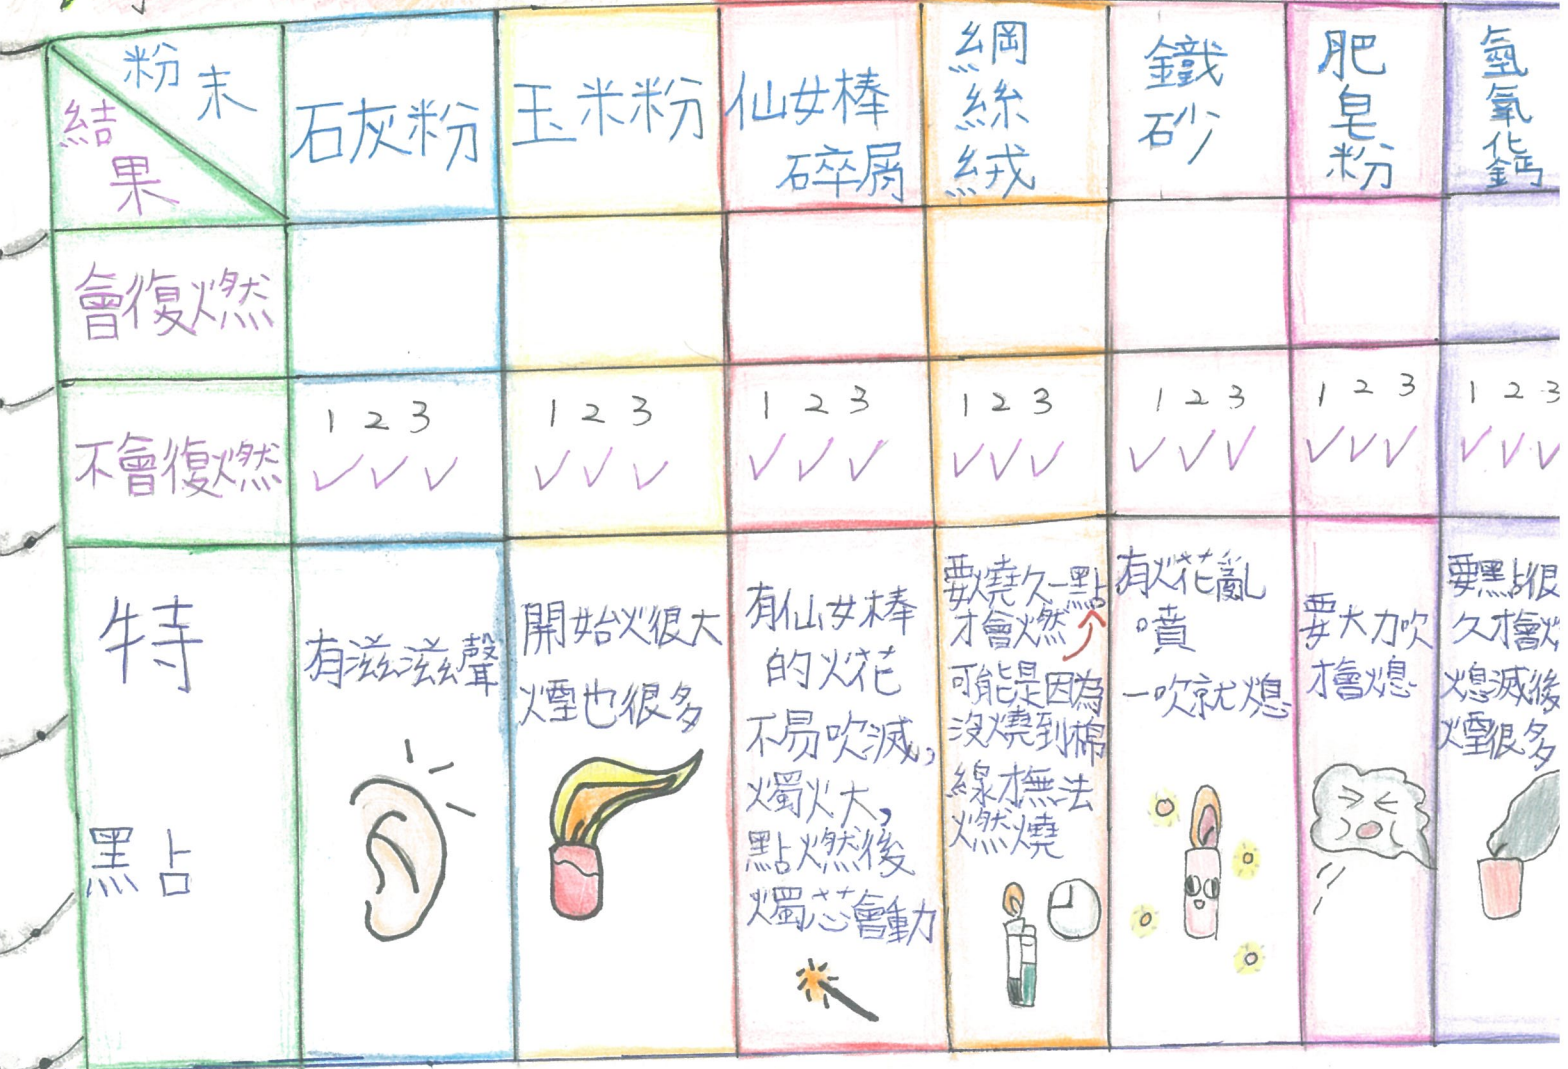 粉末
結果
石灰粉
玉米粉
仙女棒
碎屑
綱
絲
絨
鐵
砂
肥
皂
粉
氫
氧
化
鈣
會復燃
不會復燃
1 2 3
✓✓✓
1 2 3
✓✓✓
1 2 3
✓✓✓
1 2 3
✓✓✓
1 2 3
✓✓✓
1 2 3
✓✓✓
1 2 3
✓✓✓
特
點
有滋滋聲
開始火很大
煙也很多
有仙女棒
的火花
不易吹滅,
燭火大,
點燃後
燭芯會動
要燒久一點
才會燃
可能是因為
沒燒到棉
線才無法
燃燒
有火花亂
噴
一吹就熄
要大力吹
才會熄
要點很
久才會火
熄滅後
煙很多